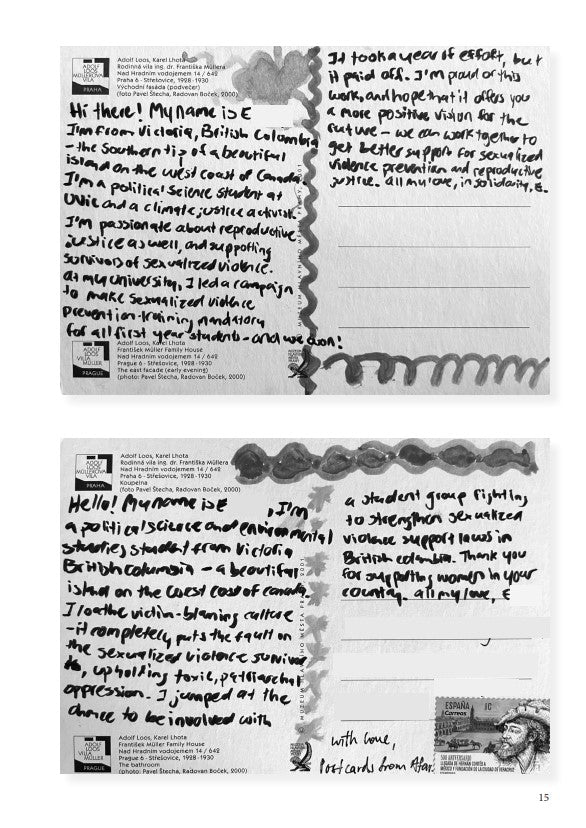 ADOLF
LOOS
MÜLLEROVA
VILA
PRAHA
Adolf Loos, Karel Lhota
Rodinná vila ing. dr. Františka Müllera
Nad Hradním vodojemem 14 / 642
Praha 6 - Střešovice, 1928 - 1930
Východní fasáda (podvečer)
(foto Pavel Štecha, Radovan Boček, 2000)
Hi there! My name is E
I'm from Victoria, British Columbia
- the southern tip of a beautiful
island on the west coast of Canada
I'm a political science student at
UVic and a climate justice activist.
I'm passionate about reproductive
justice as well, and supporting
survivors of sexualized violence.
At my university, I led a campaign
to make sexualized violence
prevention-training mandatory
for all first year students - and we won!
ADOLF
LOOS
VILLA
MÜLLER
PRAGUE
Adolf Loos, Karel Lhota
František Müller Family House
Nad Hradním vodojemem 14 / 642
Prague 6 - Střešovice, 1928 - 1930
The east facade (early evening)
(photo: Pavel Štecha, Radovan Boček, 2000)
It took a year of effort, but
it paid off. I'm proud of this
work, and hope that it offers you
a more positive vision for the
future - we can work together to
get better support for sexualized
violence prevention and reproductive
justice. All my love, in solidarity, E.
ADOLF
LOOS
MÜLLEROVA
VILA
PRAHA
Adolf Loos, Karel Lhota
Rodinná vila ing. dr. Františka Müllera
Nad Hradním vodojemem 14 / 642
Praha 6 - Střešovice, 1928 - 1930
Koupelna
(foto Pavel Štecha, Radovan Boček, 2000)
Hello! My name is E , I'm
a political science and environmental
studies student from Victoria
British Columbia - a beautiful
island on the west coast of Canada.
I loathe victim-blaming culture
- it completely puts the fault on
the sexualized violence survivor
upholding toxic, patriarchal
oppression. I jumped at the
chance to be involved with
ADOLF
LOOS
VILLA
MÜLLER
PRAGUE
Adolf Loos, Karel Lhota
František Müller Family House
Nad Hradním vodojemem 14 / 642
Prague 6 - Střešovice, 1928 - 1930
The bathroom
(photo: Pavel Štecha, Radovan Boček, 2000)
© MUZEUM HLAVNÍHO MĚSTA PRAHY, 2001
a student group fighting
to strengthen sexualized
violence support laws in
British Columbia. Thank you
for supporting women in your
country. All my love, E
with love,
Postcards from Afar
ESPAÑA
Correos
500 ANIVERSARIO
LLEGADA DE HERNÁN CORTÉS A
MÉXICO Y FUNDACIÓN DE LA CIUDAD DE VERACRUZ
15